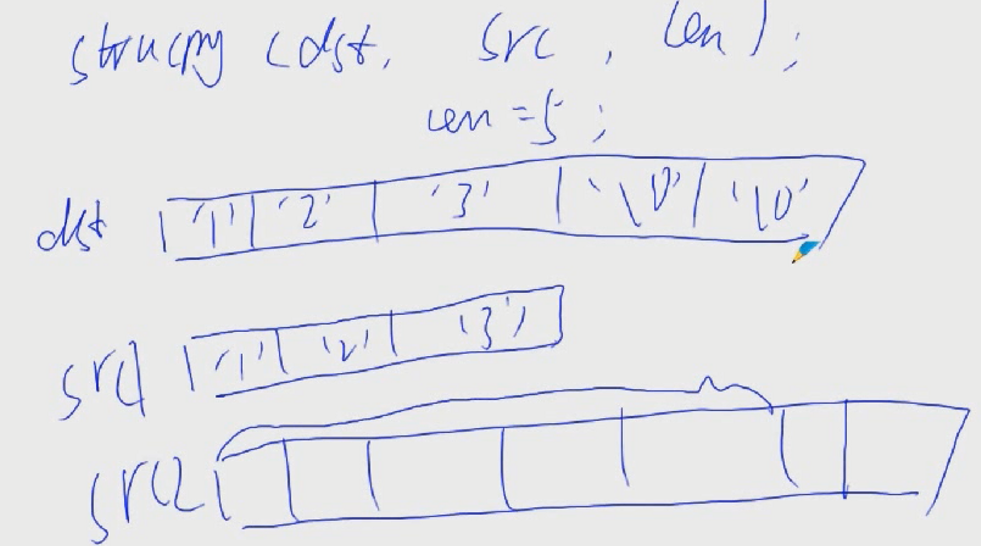 strncpy (dst, src, len);
len = 5;
dst '1' '2' '3' '\0' '\0'
src1 '1' '2' '3'
src2